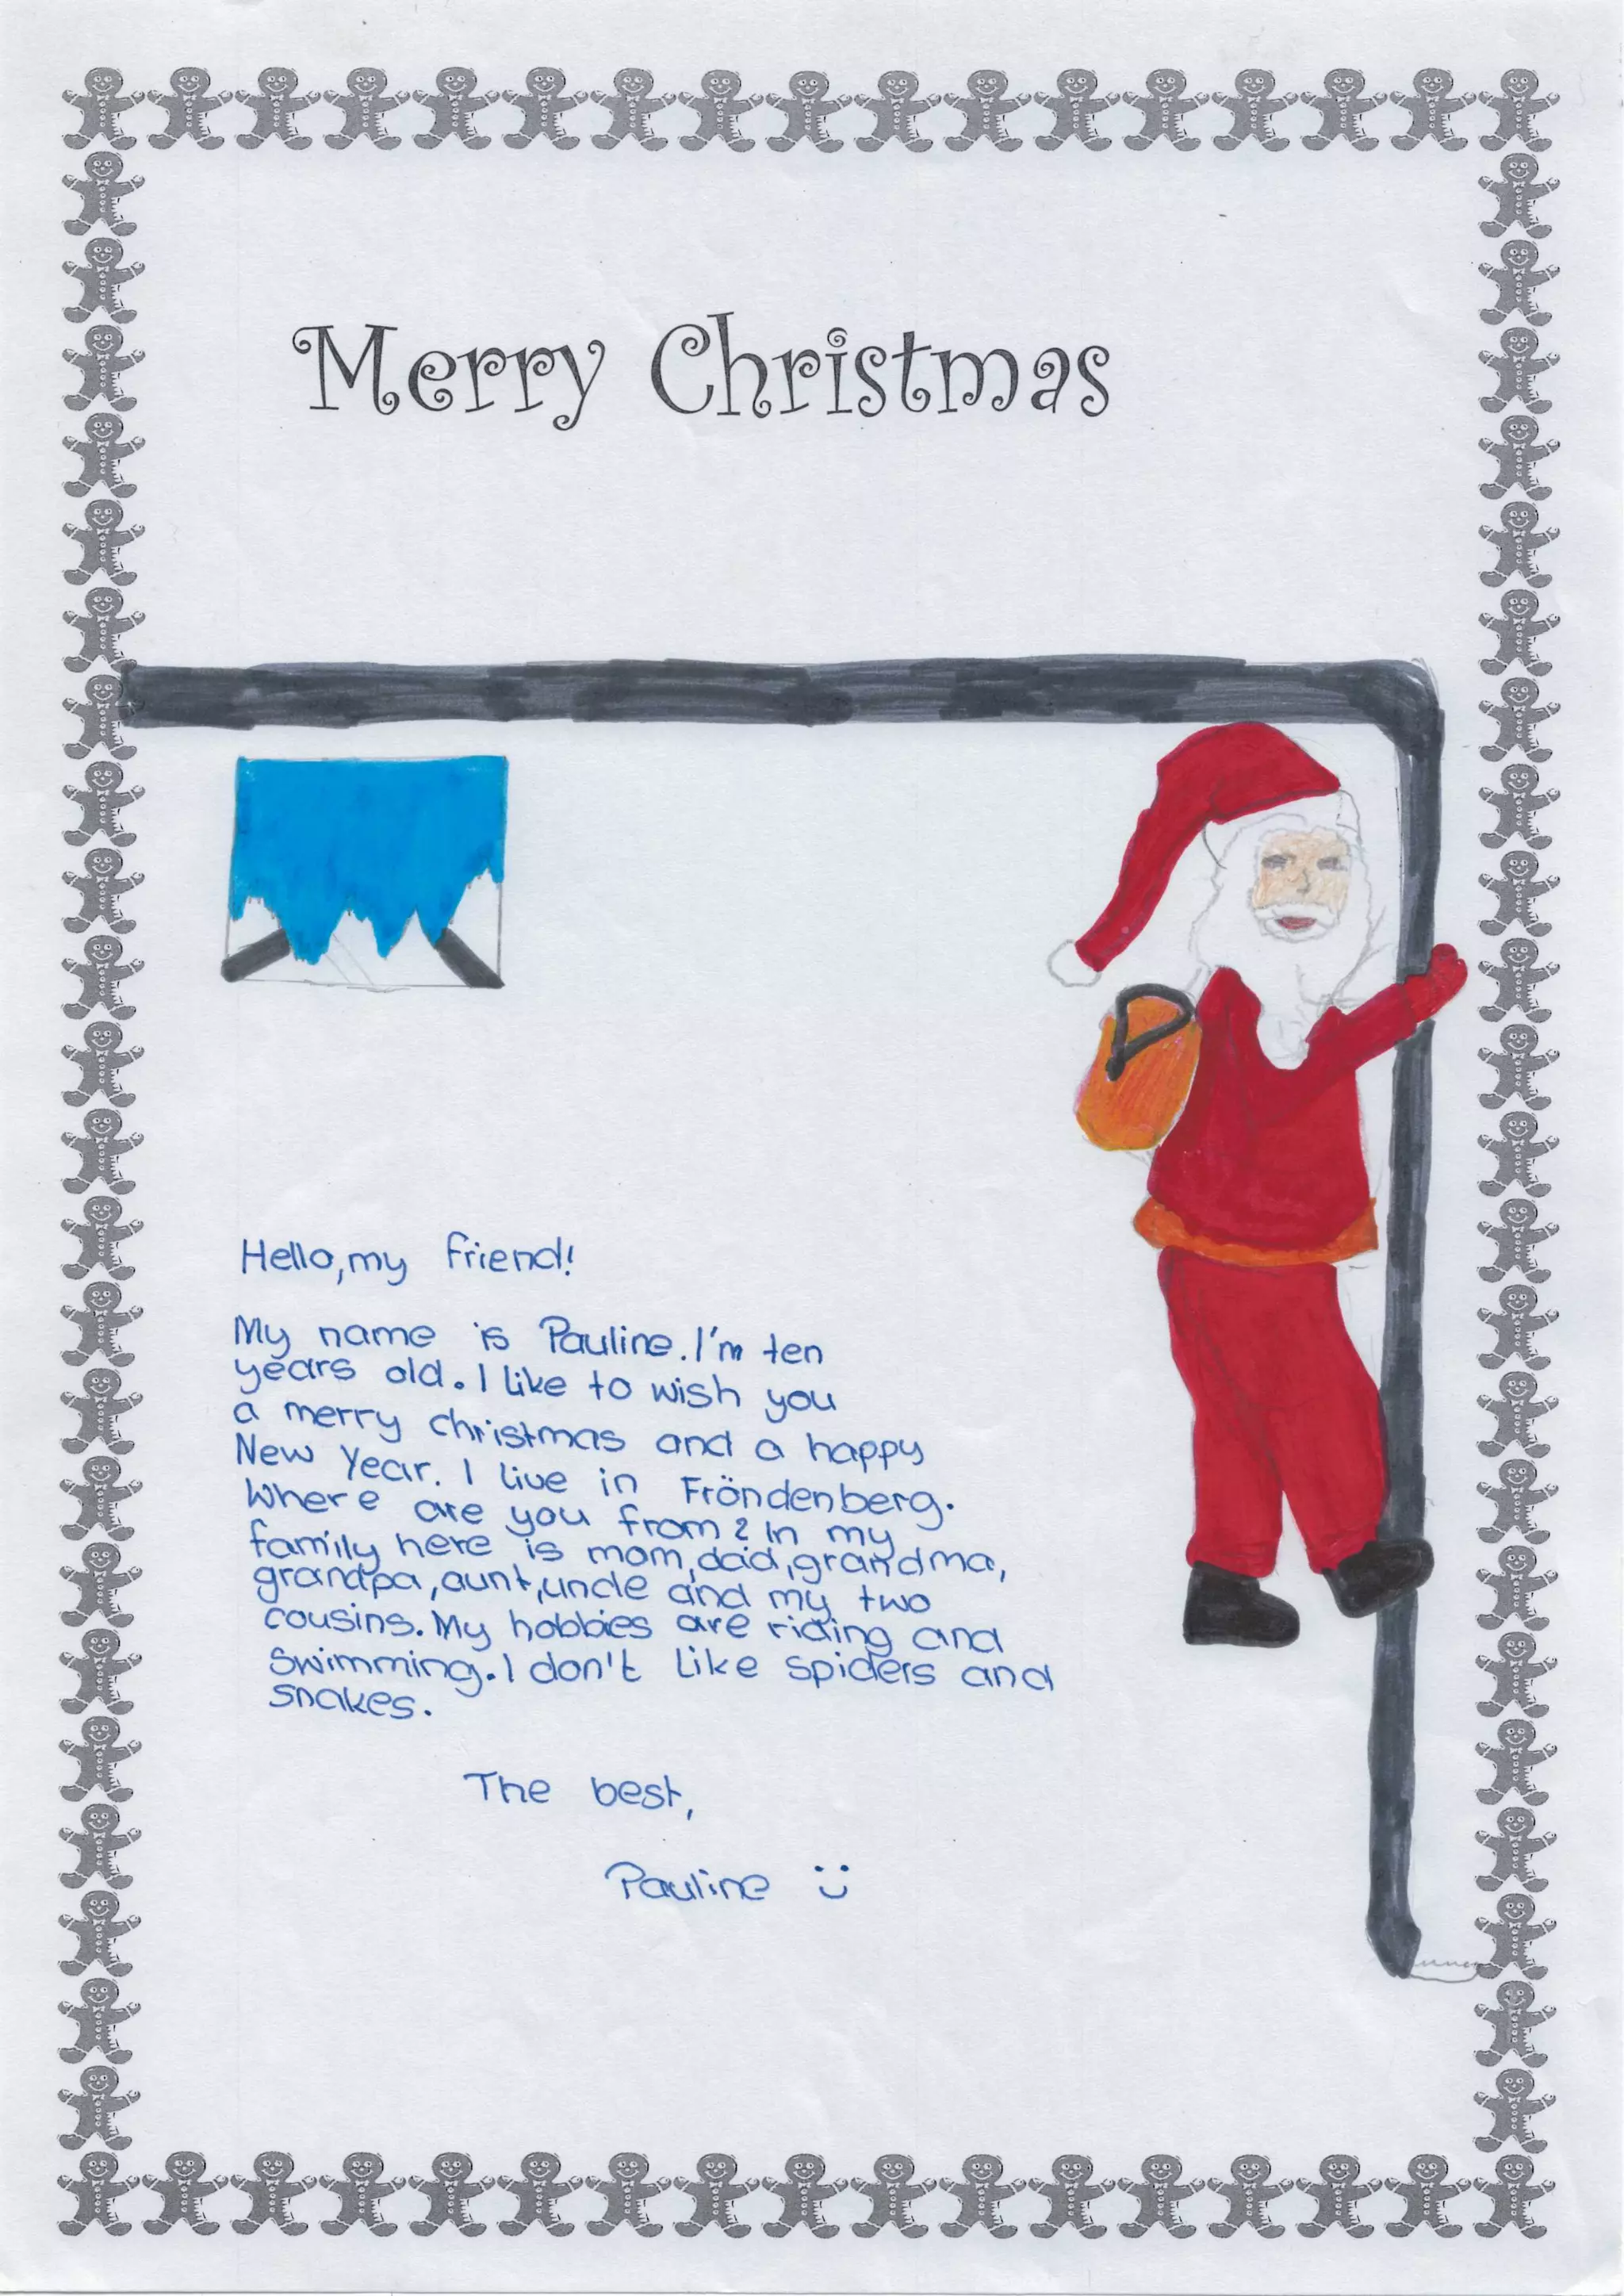 Merry Christmas
Hello, my friend!
My name is Pauline. I'm ten
years old. I like to wish you
a merry christmas and a happy
New Year. I live in Fröndenberg.
Where are you from? In my
family here is mom, dad, grandma,
grandpa, aunt, uncle and my two
cousins. My hobbies are riding and
swimming. I don't like spiders and
snakes.
The best,
Pauline :)